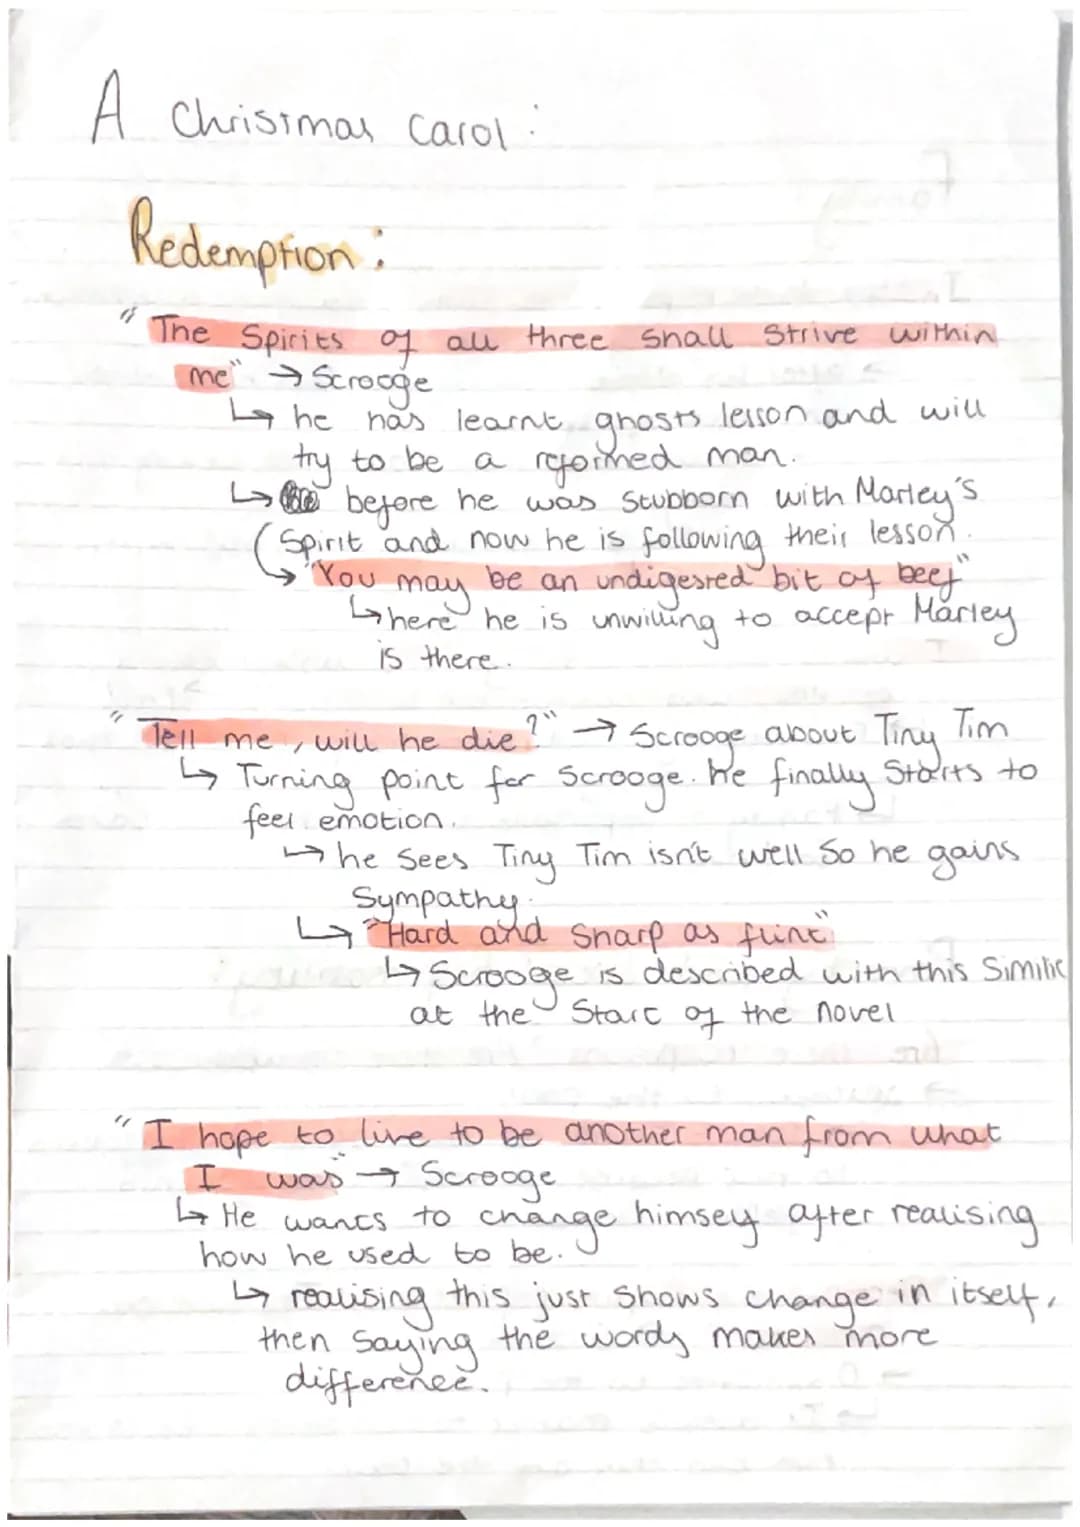 A Christmas Carol:
Redemption:
"The Spirits of all three shall Strive within
me" → Scrooge
↳ he has learnt ghosts lesson and will
try to be a reformed man.
↳ before he was stubborn with Marley's
Spirit and now he is following their lesson.
→ "You may be an undigested bit of beef"
↳ here he is unwilling to accept Marley
is there.
"Tell me, will he die?" → Scrooge about Tiny Tim
↳ Turning point for Scrooge. he finally Starts to
feel emotion.
↳ he sees Tiny Tim isn't well so he gains
Sympathy.
↳ "Hard and Sharp as flint"
↳ Scrooge is described with this Similie
at the Start of the novel
"I hope to live to be another man from what
I was" → Scrooge
↳ He wants to change himself after realising
how he used to be.
↳ realising this just shows change in itself,
then saying the words makes more
difference.